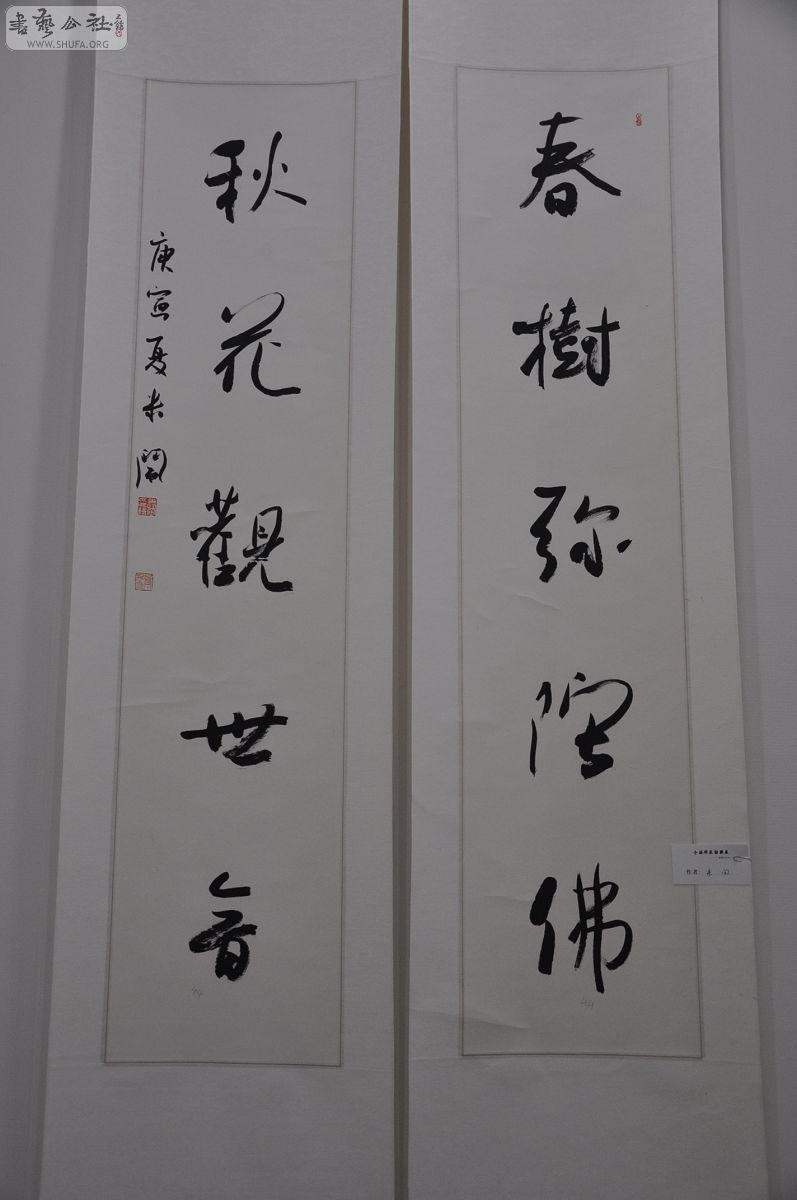 書藝公社
WWW.SHUFA.ORG
春樹弥陀佛
秋花觀世音
庚寅夏朱閑
作者:
44
44